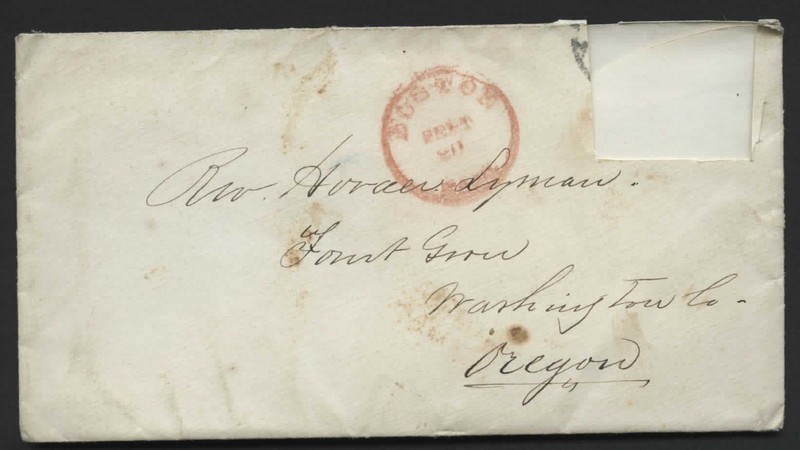 BOSTON
SEPT
20
Rev. Horace Lyman.
Forest Grove
Washington Co-
Oregon